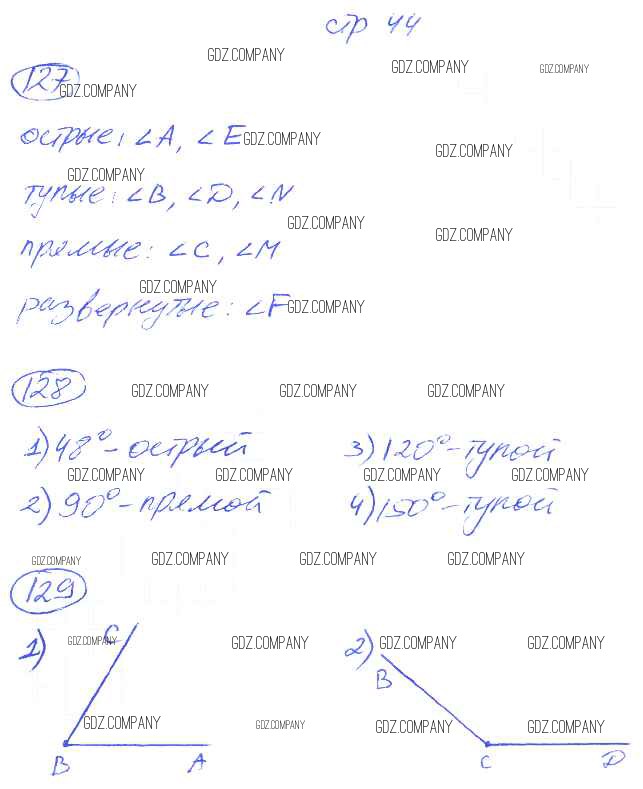 стр 44
GDZ.COMPANY GDZ.COMPANY GDZ.COMPANY
127 GDZ.COMPANY
острые: ∠A, ∠E GDZ.COMPANY GDZ.COMPANY
GDZ.COMPANY
тупые: ∠B, ∠D, ∠N
GDZ.COMPANY GDZ.COMPANY
прямые: ∠C, ∠M
GDZ.COMPANY
развернутые: ∠F GDZ.COMPANY
128 GDZ.COMPANY GDZ.COMPANY GDZ.COMPANY
1) 48° - острый 3) 120° - тупой
GDZ.COMPANY GDZ.COMPANY GDZ.COMPANY GDZ.COMPANY
2) 90° - прямой 4) 150° - тупой
GDZ.COMPANY GDZ.COMPANY GDZ.COMPANY GDZ.COMPANY
129
1) GDZ.COMPANY C GDZ.COMPANY 2) GDZ.COMPANY GDZ.COMPANY
B
GDZ.COMPANY GDZ.COMPANY GDZ.COMPANY GDZ.COMPANY
B A C D